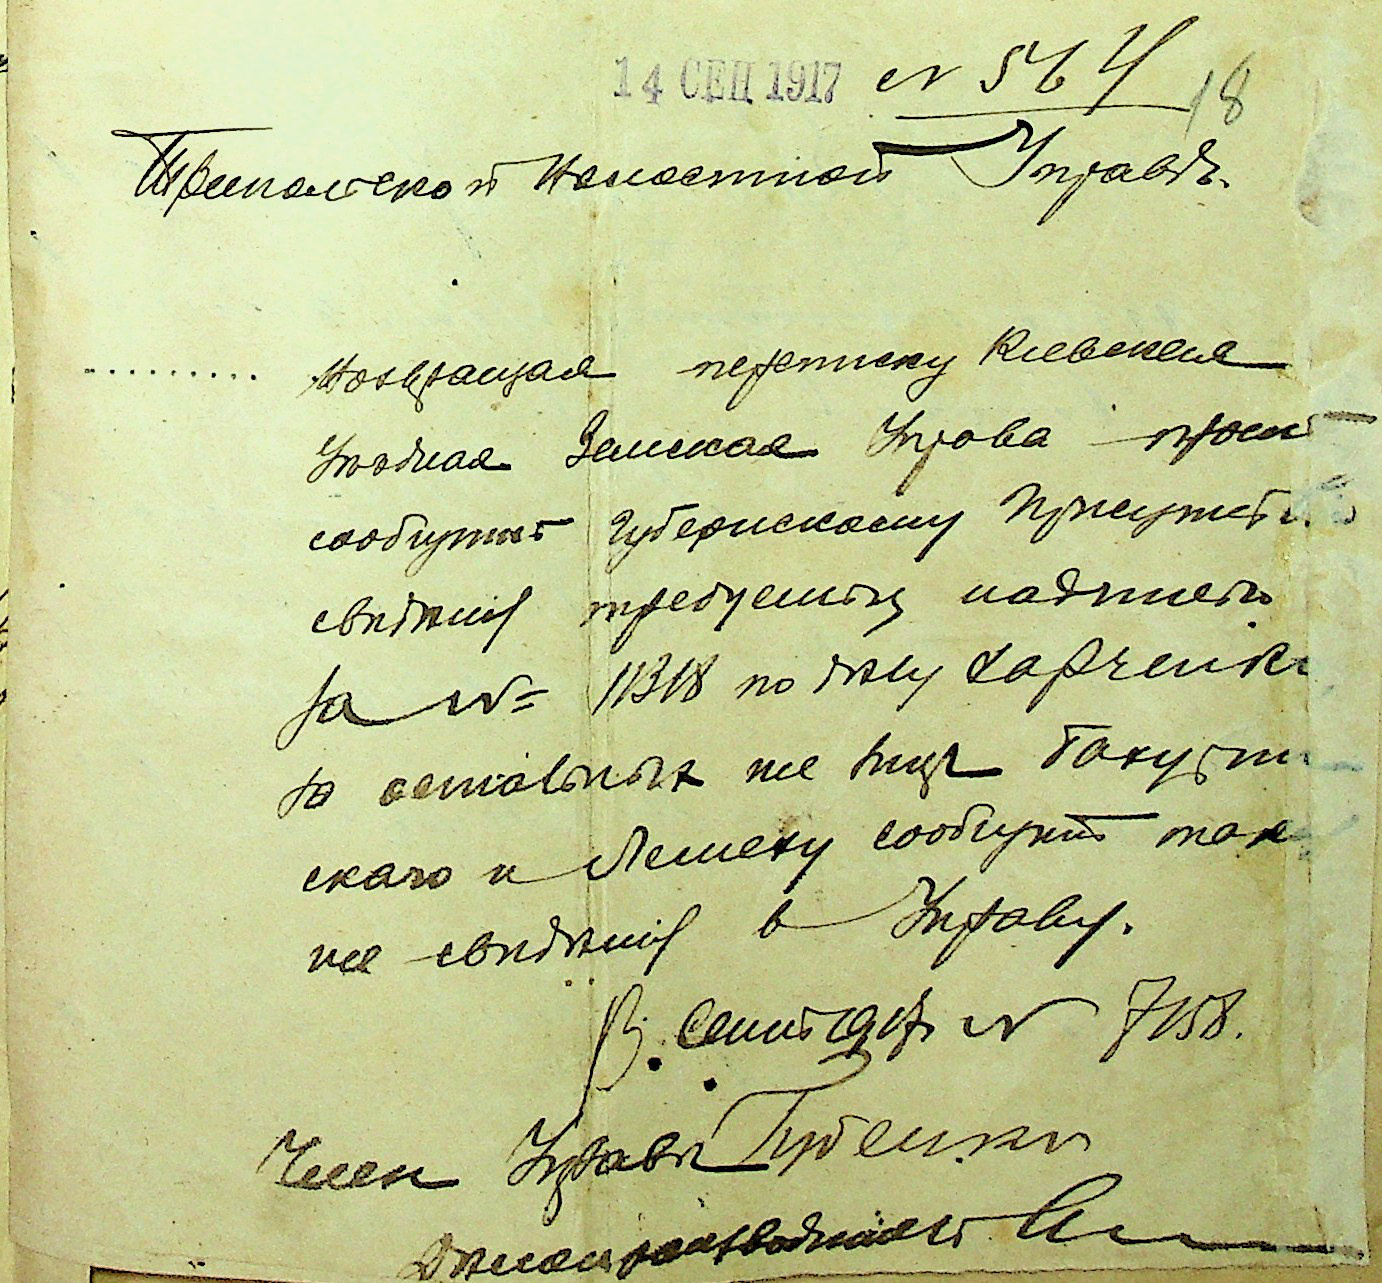 14 СЕН 1917 № 564
18
Трипольской Волостной Управѣ.
Возвращая переписку Киевская
Уѣздная Земская Управа просит
сообщить Губернскому Присутств.
свѣдѣнія требуемыя надписью
за № 11318 по дѣлу Харченко
за остальных же лиц
скаго и сообщить так
же свѣдѣнія в Управу.
Сент 1917 № 7158.
Член Управы
Дѣлопроизводитель